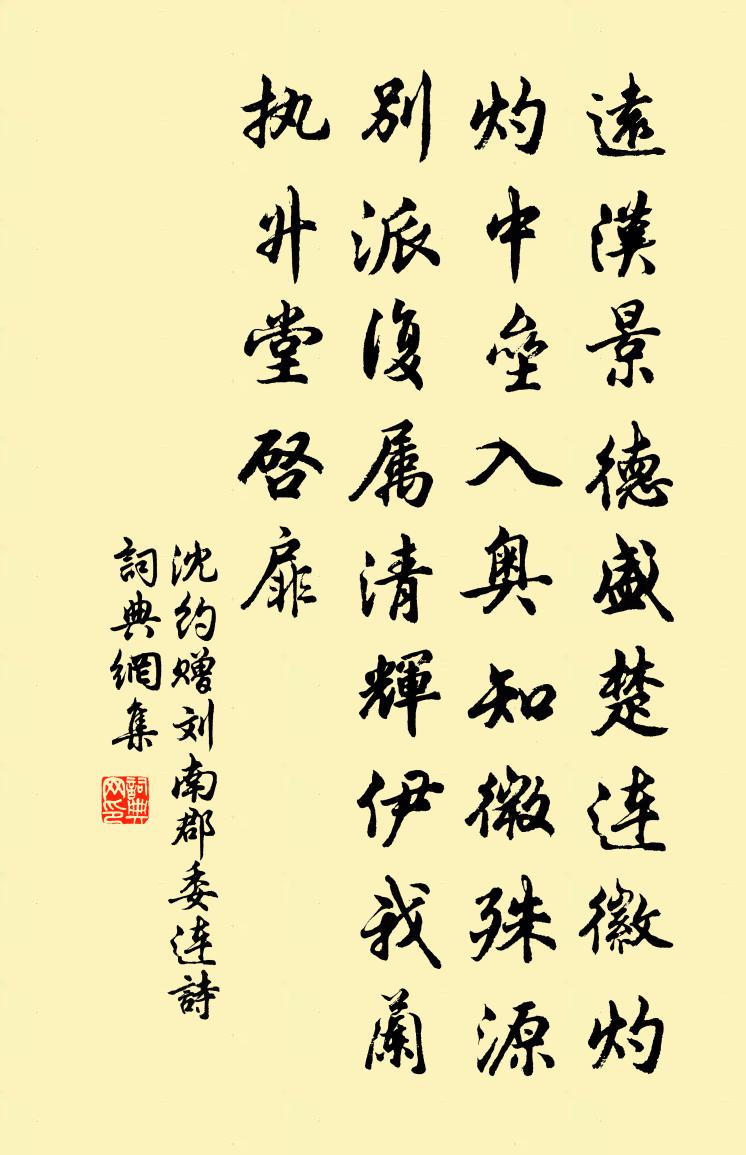 遠漢景德盛楚连徽灼
灼中垒入奥知微殊源
别派復属清輝伊我蘭
执升堂启扉
沈约赠刘南郡委连詩
詞典網集
詞典网印